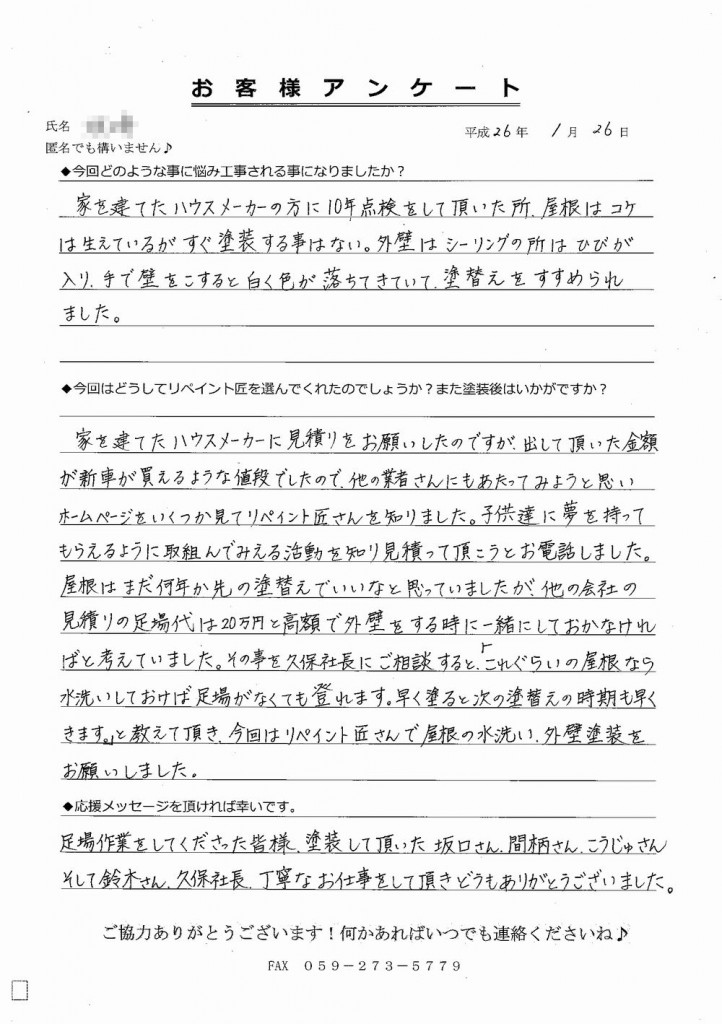 お客様アンケート
氏名
平成26年 1月 26日
匿名でも構いません♪
◆今回どのような事に悩み工事される事になりましたか？
家を建てたハウスメーカーの方に10年点検をして頂いた所、屋根はコケ
は生えているがすぐ塗装する事はない。外壁はシーリングの所はひびが
入り、手で壁をこすると白く色が落ちてきていて、塗替えをすすめられ
ました。
◆今回はどうしてリペイント匠を選んでくれたのでしょうか？また塗装後はいかがですか？
家を建てたハウスメーカーに見積りをお願いしたのですが、出して頂いた金額
が新車が買えるような値段でしたので、他の業者さんにもあたってみようと思い
ホームページをいくつか見てリペイント匠さんを知りました。子供達に夢を持って
もらえるように取組んでみえる活動を知り見積って頂こうとお電話しました。
屋根はまだ何年か先の塗替えでいいなと思っていましたが、他の会社の
見積りの足場代は20万円と高額で外壁をする時に一緒にしておかなけれ
ばと考えていました。その事を久保社長にご相談すると、「これぐらいの屋根なら
水洗いしておけば足場がなくても登れます。早く塗ると次の塗替えの時期も早く
きます。」と教えて頂き、今回はリペイント匠さんで屋根の水洗い、外壁塗装を
お願いしました。
◆応援メッセージを頂ければ幸いです。
足場作業をしてくださった皆様、塗装して頂いた坂口さん、間柄さん、こうじゅさん
そして鈴木さん、久保社長、丁寧なお仕事をして頂きどうもありがとうございました。
ご協力ありがとうございます！何かあればいつでも連絡くださいね♪
FAX 059－273－5779